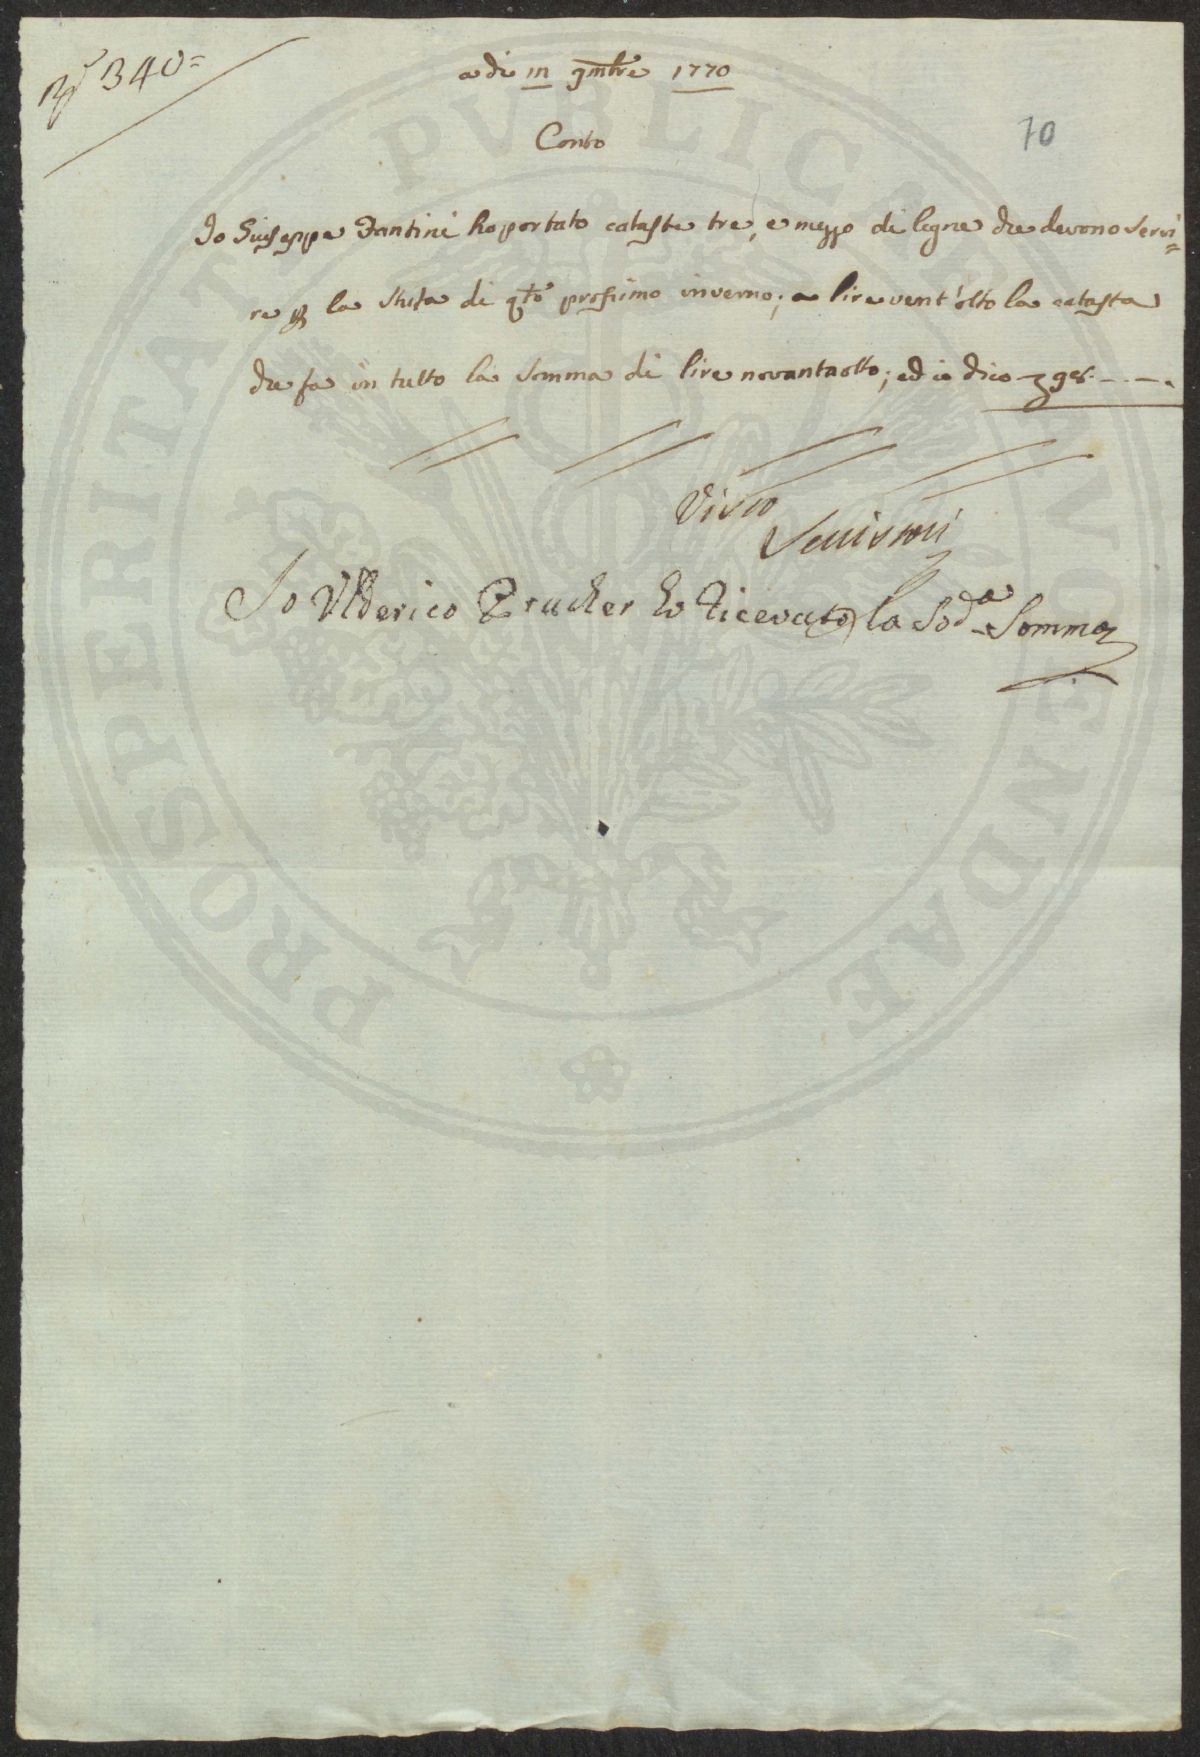 340=
a di 111 9mbre 1770
70
Conto
Io Giuseppe Fantini ho portato cataste tre, e mezzo di legne che devono servi=
re per la stufa di qto prossimo inverno; a lire vent'otto la catasta
che fa in tutto la somma di lire novantaotto; ed io dico 98.----.
Visto
Io Ulderico Prucker ho ricevuto la Sod.a Somma
PROSPERITATI PVBLICAE AVGENDAE